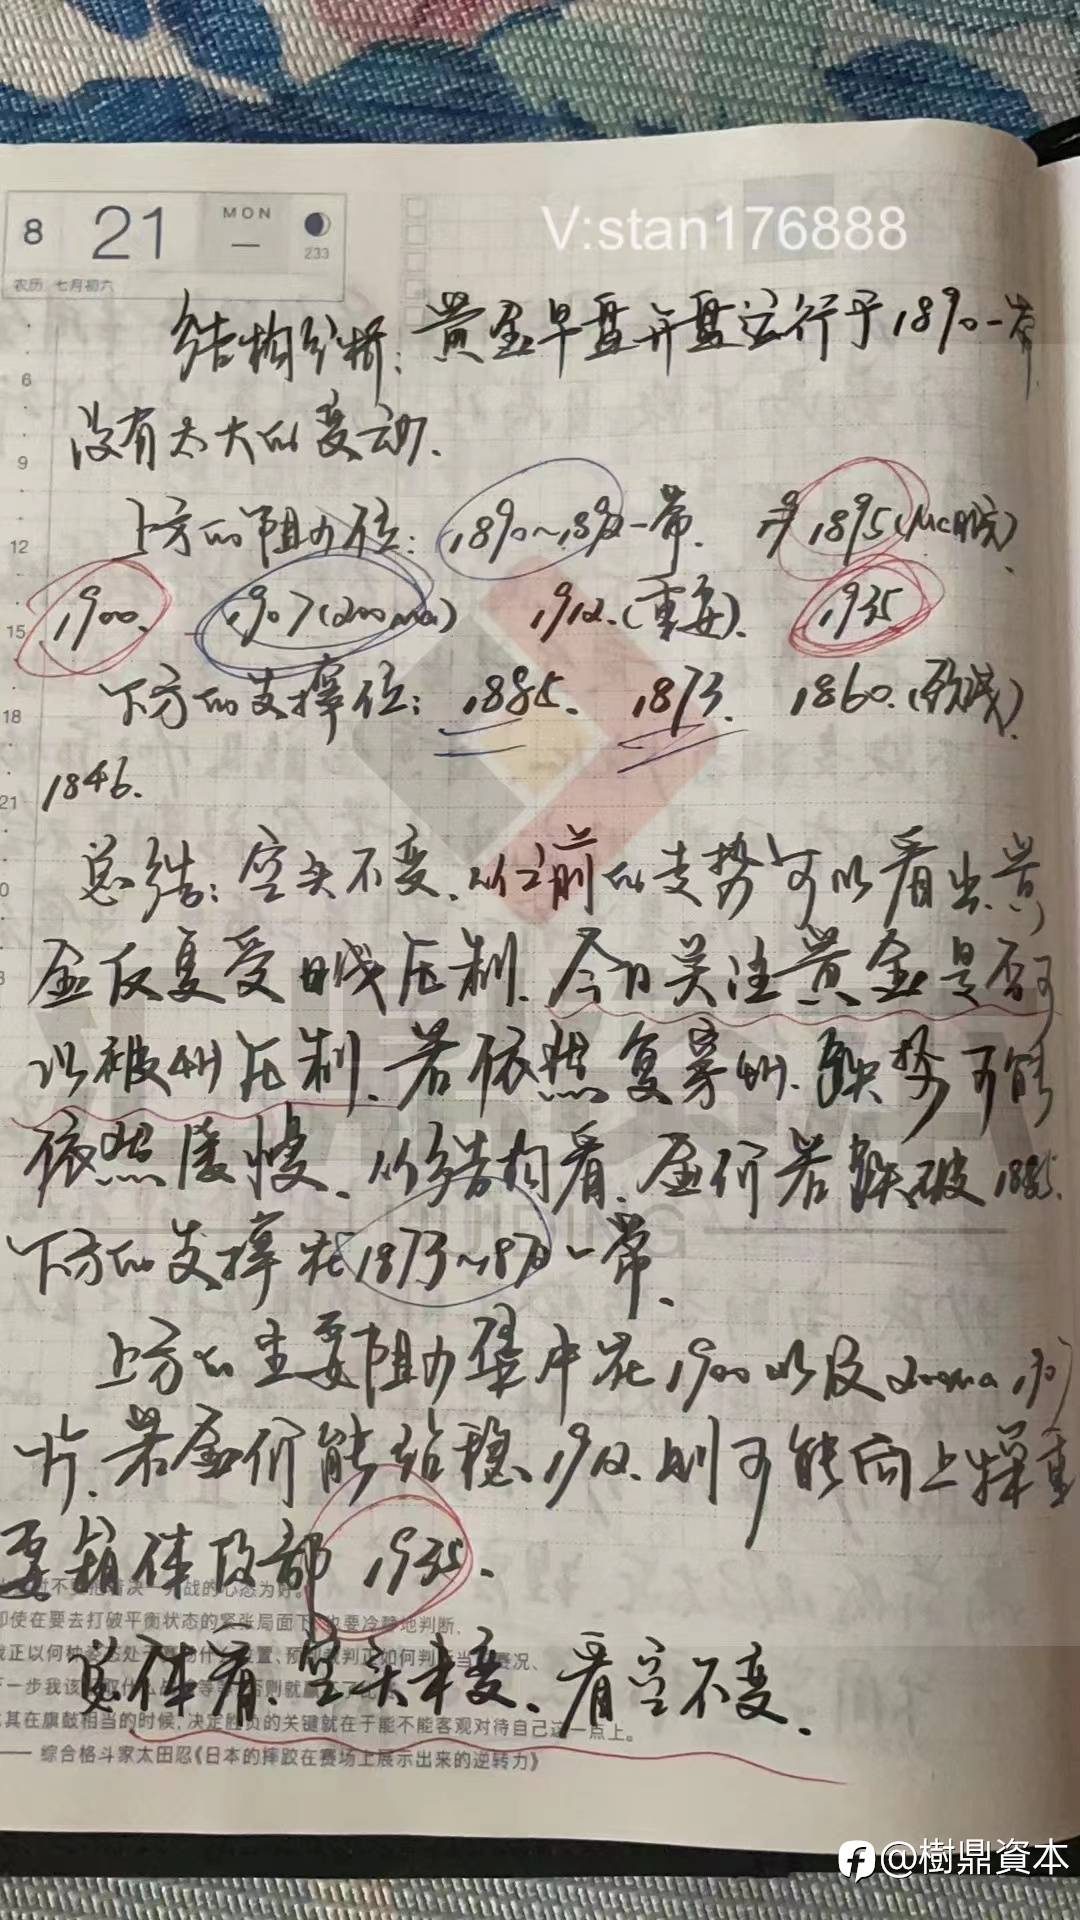 8 21 MON 一 233
农历 七月初六
V:stan176888
结构分析：黄金早盘开盘运行于1890一带
没有太大的变动.
上方的阻力位：1890~1892一带. 1895(
1900. 1907(200ma) 1912.(重要). 1935
下方的支撑位：1885. 1873. 1860.(
1846.
总结：空头不变.从之前的走势可以看出.黄
金反复受日线压制.今日关注黄金是否可
以被4H压制.若依然复穿4H.跌势可能
依然缓慢.从结构看.金价若跌破1885.
下方的支撑在1873~1870一带.
上方的主要阻力集中在1900以及200ma 1907
一片.若金价能站稳1912.则可能向上探重
要实体顶部1935.
总体看.空头未变.看空不变.
战的心态为好。
即使在要去打破平衡状态的紧张局面下,也要冷静地判断,
其在旗鼓相当的时候,决定胜负的关键就在于能不能客观对待自己这一点上。
—— 综合格斗家太田忍《日本的摔跤在赛场上展示出来的逆转力》
6
9
12
15
18
21
@樹鼎資本